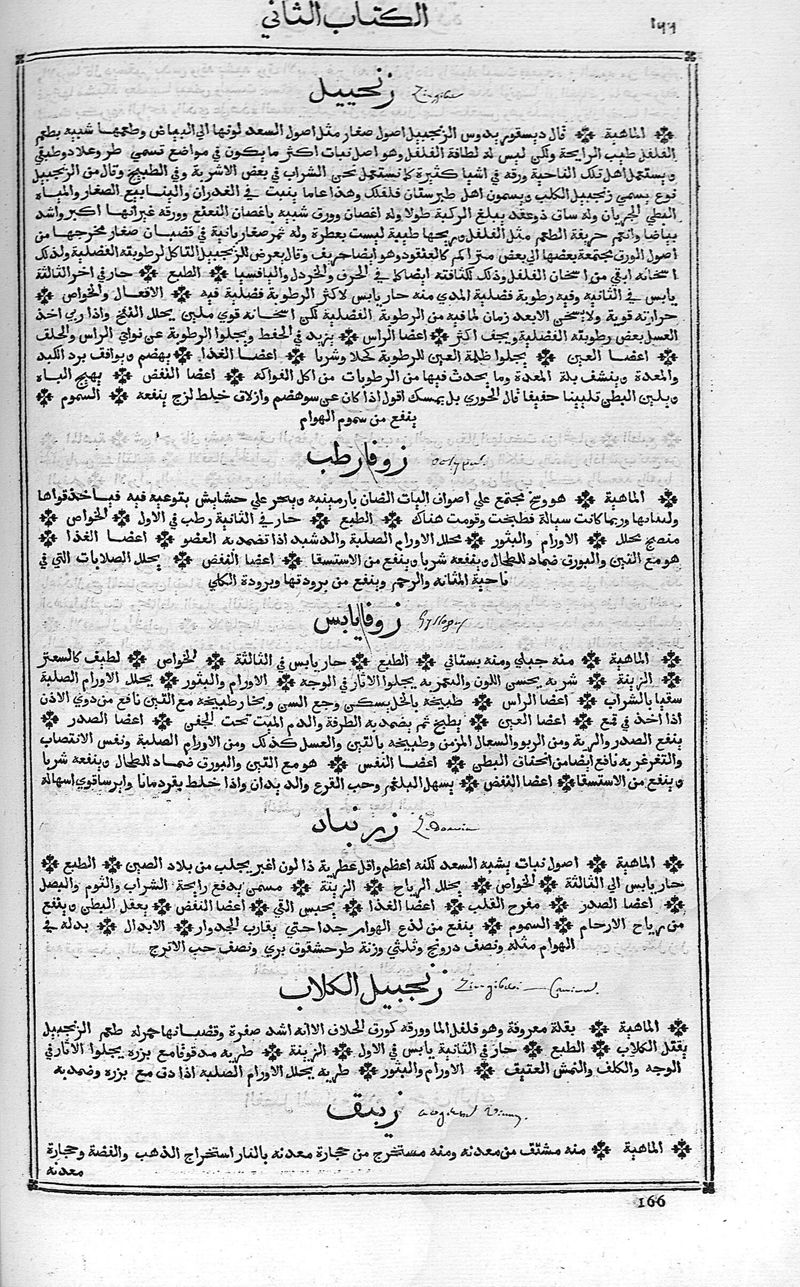 ١٦٦ الكتاب الثاني
زنجبيل Zingiber
❊ الماهية ❊ قال ديسقوريدوس الزنجبيل اصول صغار مثل اصول السعد لونها الى البياض وطعمها شبيه بطعم
الفلفل طيب الرايحة ولكن ليس له لطافة الفلفل وهو اصل نبات اكثر ما يكون في مواضع تسمي طروعلادوطيقي
ويستعمل اهل تلك الناحية ورقه في اشيا كثيرة كما نستعمل نحن الشراب في بعض الاشربة وفي الطبيخ وقال من الزنجبيل
نوع يسمي زنجبيل الكلاب ويسمون اهل طبرستان فلفلك وهذا عاما ينبت في الغدران والينابيع الصغار والمياه
البطي الجريان وله ساق ذو عقد يبلغ الركبة طولا وله اغصان وورق شبيه باغصان النعنع وورقه غير انها اكبر واشد
بياضا وانعم حريفة الطعم مثل الفلفل وريحها طيبة ليست بعطرة وله ثمر صغار نابتة في قضبان صغار مخرجها من
اصول الورق مجتمعة بعضها الى بعض متراكم كالعنقود وهو ايضا حريف وقال يعرض للزنجبيل التاكل لرطوبته الفضلية ولذلك
اسخانه ابقي من اسخان الفلفل وذلك لكثافته ايضا كما في الحرف والخردل واليافسيا ❊ الطبع ❊ حار في اخر الثالثة
يابس في الثانية وفيه رطوبة فضلية المدي منه حار يابس لاكثر الرطوبة فضلية فيه ❊ الافعال والخواص ❊
حرارته قوية ولا يسخن الا بعد زمان لما فيه من الرطوبة الفضلية لكن اسخانه قوي ملين يحلل النفخ واذا ربي اخذ
العسل بعض رطوبته الفضلية ويجف اكثر ❊ اعضا الراس ❊ يزيد في الحفظ ويجلوا الرطوبة عن نواحي الراس والحلق
❊ اعضا العين ❊ يجلوا ظلمة العين للرطوبة كحلا وشربا ❊ اعضا الغذا ❊ يهضم ويوافق برد الكبد
والمعدة وينشف بلة المعدة وما يحدث فيها من الرطوبات من اكل الفواكه ❊ اعضا النفض ❊ يهيج الباه
ويلين البطن تليينا خفيفا قال الخوزي بل يمسك اقول اذا كان عن سوهضم وازلاق خلط لزج ينفعه ❊ السموم ❊
ينفع من سموم الهوام
زوفا رطب
❊ الماهية ❊ هو وسخ يجتمع علي اصواف اليات الضان بارمينية وينجر علي حشايش يتوعية فيه فياخذ قواها
ولبناتها وربما كانت سيالة فطبخت وقومت هناك ❊ الطبع ❊ حار في الثانية رطب في الاول ❊ الخواص ❊
منضج محلل ❊ الاورام والبثور ❊ محلل الاورام الصلبة والدشبد اذا تضمد به العضو ❊ اعضا الغذا ❊
هو مع التين والبورق ضماد للطحال وينفعه شربا وينفع من الاستسقا ❊ اعضا النفض ❊ يحلل الصلابات التي في
ناحية المثانه والرحم وينفع من برودتها وبرودة الكلي
زوفا يابس
❊ الماهية ❊ منه جبلي ومنه بستاني ❊ الطبع ❊ حار يابس في الثالثة ❊ الخواص ❊ لطيف كالسعتر
❊ الزينة ❊ شربه يحسن اللون والتغمر به يجلوا الاثار في الوجه ❊ الاورام والبثور ❊ يحلل الاورام الصلبة
سقيا بالشراب ❊ اعضا الراس ❊ طبيخه بالخل يسكن وجع السن وبخار طبيخه مع التين نافع من دوي الاذن
اذا اخذ في قمع ❊ اعضا العين ❊ يطبخ ثم يضمد به الطرفة والدم الميت تحت الجفن ❊ اعضا الصدر ❊
ينفع الصدر والرية ومن الربو والسعال المزمن وطبيخه بالتين والعسل كذلك ومن الاورام الصلبة ونفس الانتصاب
والتغرغر به نافع ايضا من اختناق البطن ❊ اعضا النفس ❊ هو مع التين والبورق ضماد للطحال وينفعه شربا
وينفع من الاستسقا ❊ اعضا النفض ❊ يسهل البلغم وحب القرع والديدان واذا خلط بقردمانا وايرسا قوي اسهاله
زرنباد
❊ الماهية ❊ اصول نبات يشبه السعد لكنه اعظم واقل عطرية ذا لون اغبر يجلب من بلاد الصين ❊ الطبع ❊
حار يابس الى الثالثة ❊ الخواص ❊ يحلل الرياح ❊ الزينة ❊ مسمن يدفع رايحة الشراب والثوم والبصل
❊ اعضا الصدر ❊ مفرح القلب ❊ اعضا الغذا ❊ يحبس القي ❊ اعضا النفض ❊ يعقل البطن وينفع
من رياح الارحام ❊ السموم ❊ ينفع من لدغ الهوام جدا حتي يقارب الجدوار ❊ الابدال ❊ بدله في
الهوام مثله ونصف درونج وثلثي وزنة طرحشقوق بري ونصف حب الاترج
زنجبيل الكلاب
❊ الماهية ❊ بقلة معروفة وهو فلفل الما وورقه كورق الخلاف الا انه اشد صفرة وقضبانها حمر له طعم الزنجبيل
يقتل الكلاب ❊ الطبع ❊ حار في الثانية يابس في الاول ❊ الزينة ❊ طريه مدقوقا مع بزره يجلوا الاثار في
الوجه والكلف والنمش العتيق ❊ الاورام والبثور ❊ طريه يحلل الاورام الصلبه اذا دق مع بزره وضمد به
زيبق
❊ الماهية ❊ منه مشتق من معدنه ومنه مستخرج من حجارة معدنه بالنار استخراج الذهب والفضة وحجارة
معدنه
166